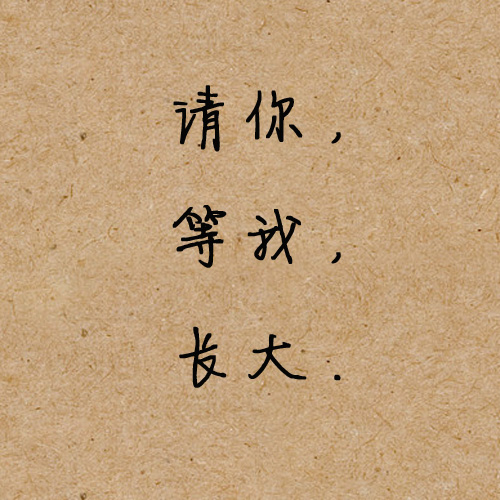 请你，
等我，
长大.